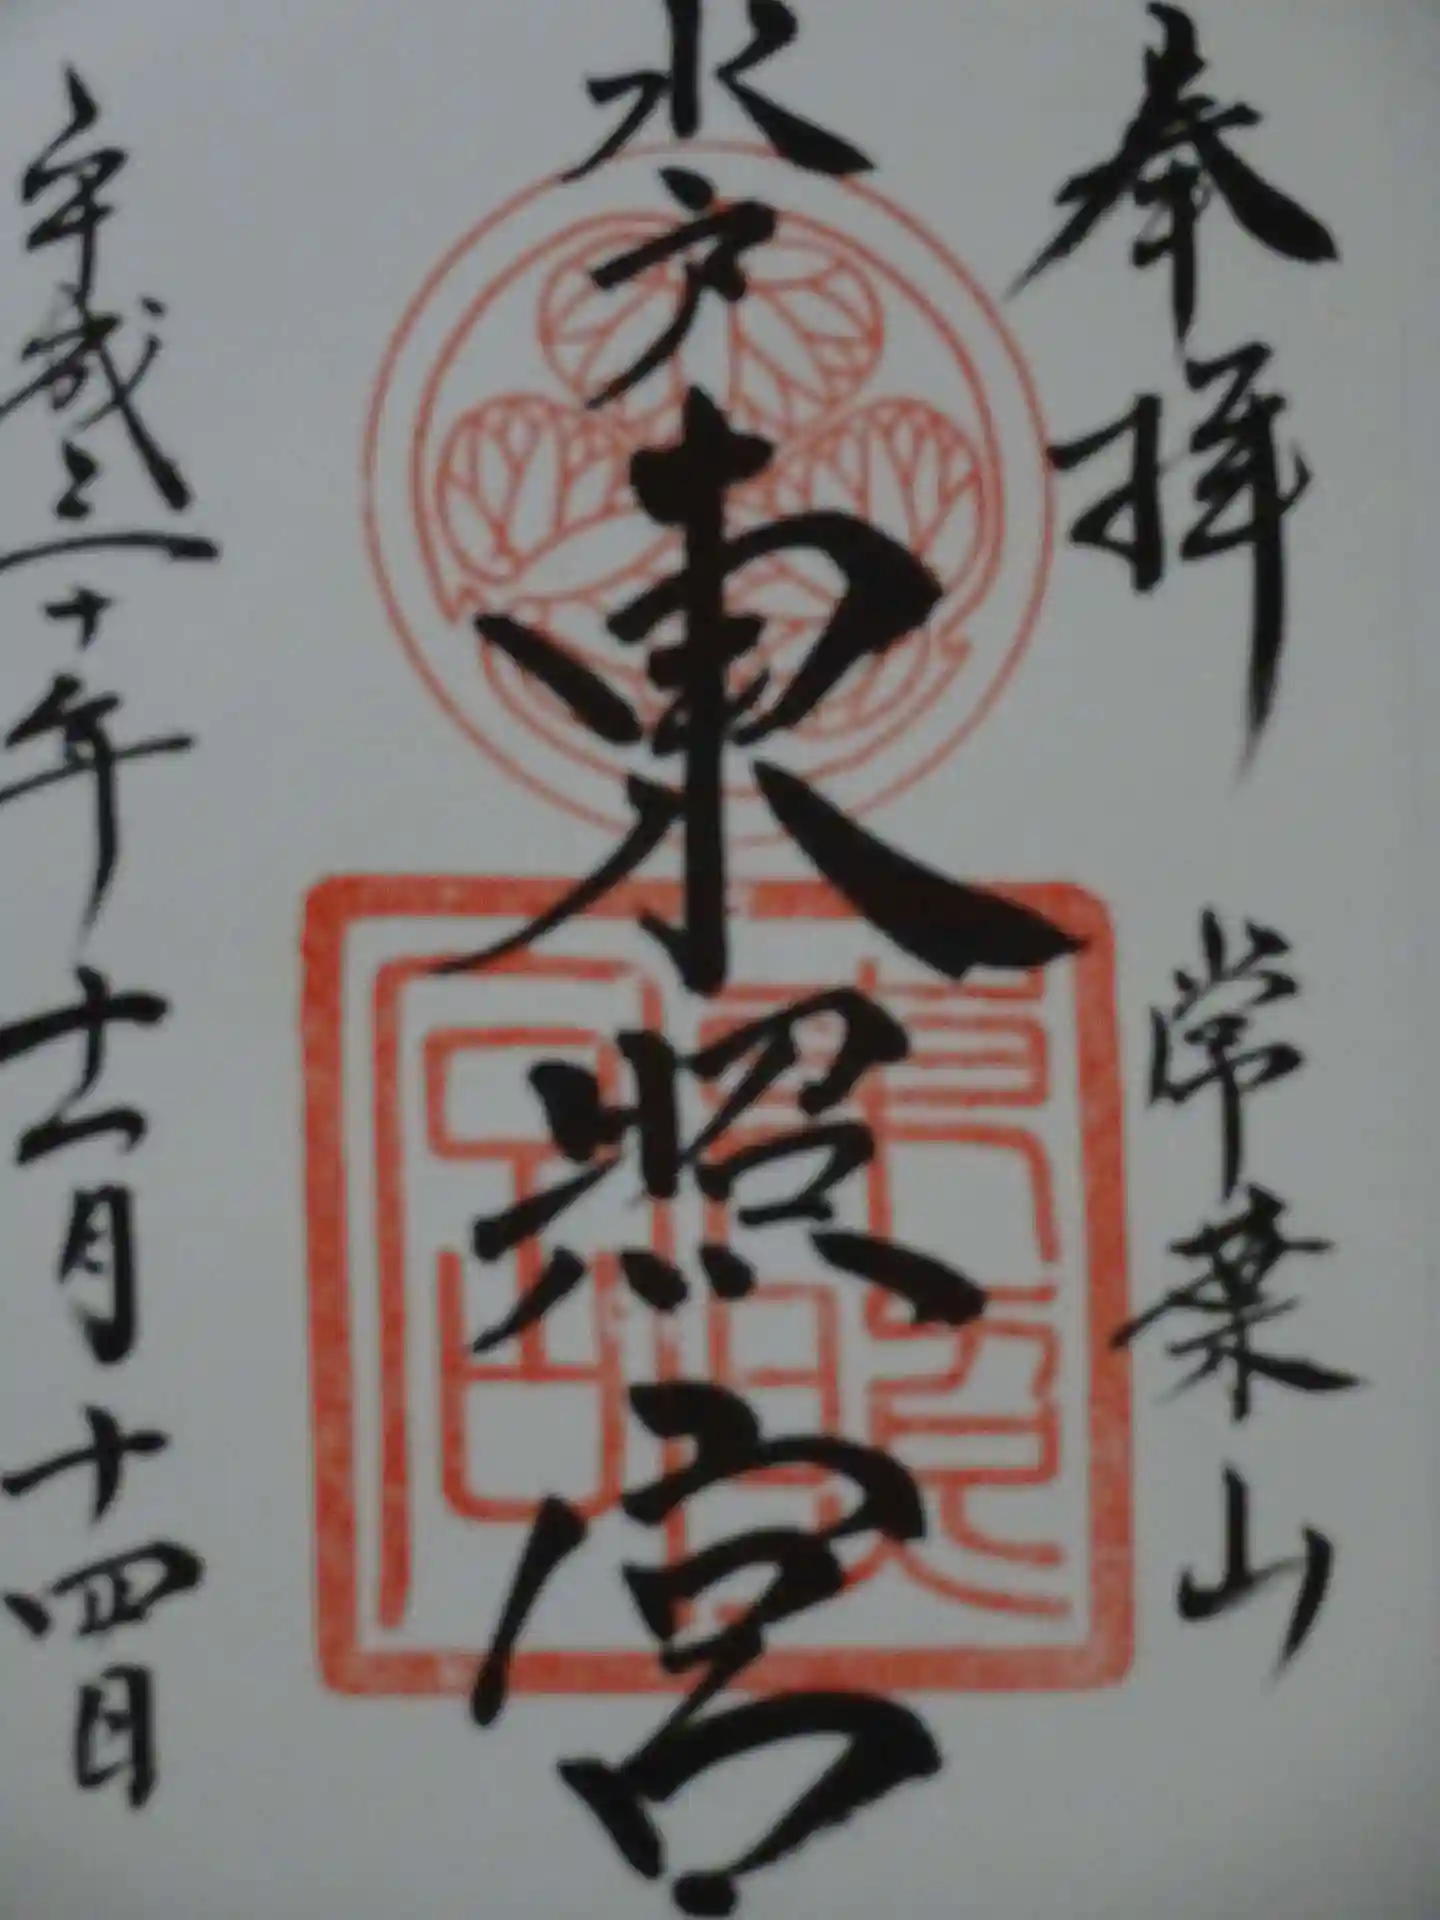 奉拝
常葉山
水戸東照宮
東照宮
平成三十年十一月十四日